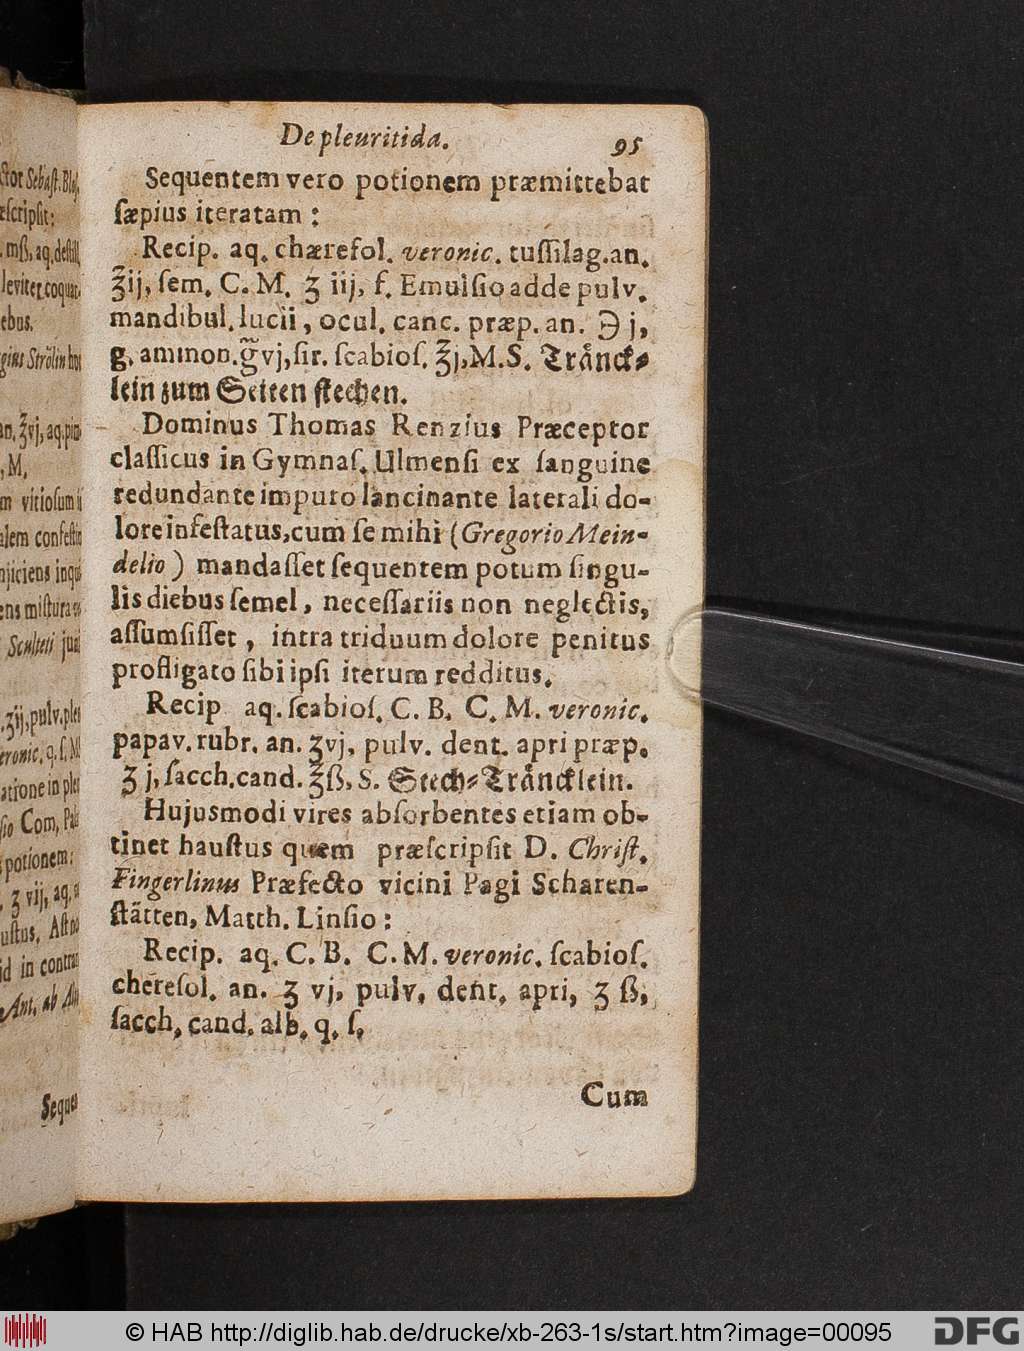 De pleuritida. 95
Sequentem vero potionem præmittebat
ſæpius iteratam:
Recip. aq. chærefol. veronic. tuſſilag. an.
℥ij, ſem. C. M. ʒ iij, f. Emulſio adde pulv.
mandibul. lucii, ocul. canc. præp. an. ℈ j,
g. ammon. g̃vj, ſir. ſcabioſ. ℥j, M. S. Tränck⸗
lein zum Seiten ſtechen.
Dominus Thomas Renzius Præceptor
claſſicus in Gymnaſ. Ulmenſi ex ſanguine
redundante impuro lancinante laterali do-
lore infeſtatus, cum ſe mihi (Gregorio Mein-
delio) mandaſſet ſequentem potum ſingu-
lis diebus ſemel, neceſſariis non neglectis,
aſſumſiſſet, intra triduum dolore penitus
profligato ſibi ipſi iterum redditus.
Recip aq. ſcabioſ. C. B. C. M. veronic.
papav. rubr. an. ʒvj, pulv. dent. apri præp.
ʒ j, ſacch. cand. ℥ß, S. Stech⸗Träncklein.
Hujusmodi vires abſorbentes etiam ob-
tinet hauſtus quem præſcripſit D. Chriſt.
Fingerlinus Præfecto vicini Pagi Scharen-
ſtätten, Matth. Linſio:
Recip. aq. C. B. C. M. veronic. ſcabioſ.
cherefol. an. ʒ vj, pulv, dent, apri, ʒ ß,
ſacch, cand. alb. q. ſ.
Cum
ctor Sebaſt.
eſcripſit:
mß, aq. deſtill.
leviter coquat.
ebus.
Strölin
an. ʒvj, aq.
, M,
m vitioſum
alem confeſtim
njiciens
ens miſtura
Sculteti
.ʒij, pulv.
eronic. q. ſ. M
atione in
ſio Com.
potionem:
. ʒ vij, aq.
uſtus,
id in
Ant. ab
Seque
© HAB http://diglib.hab.de/drucke/xb-263-1s/start.htm?image=00095
DFG